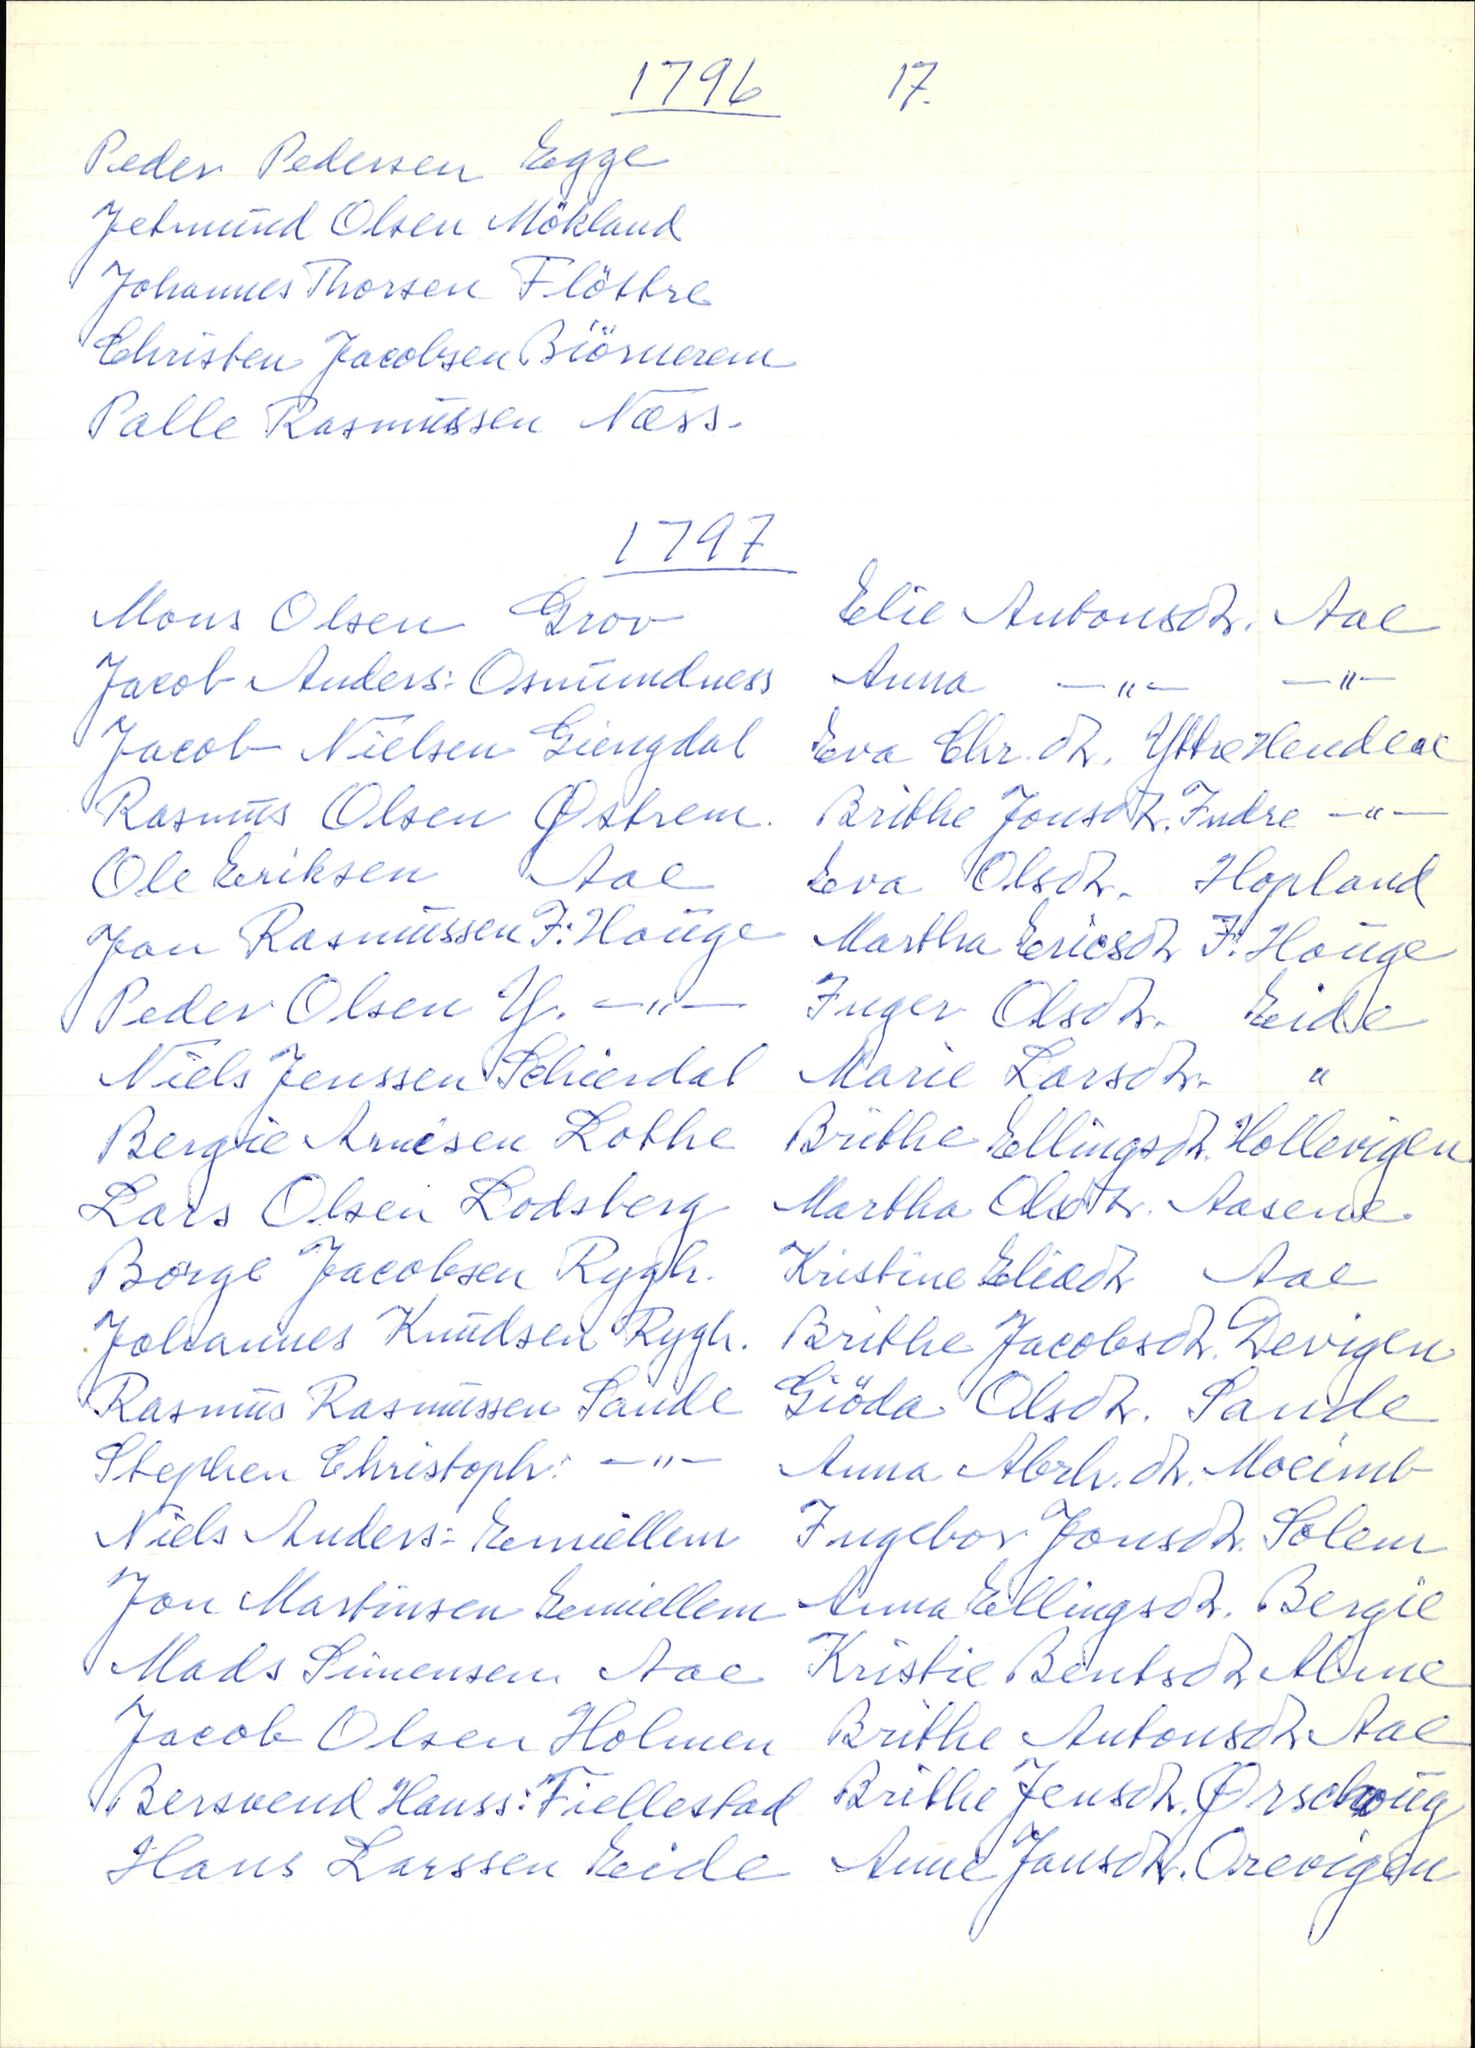 1796 17.
Peder Pedersen Egge
Jetmund Olsen Mökland
Johannes Thorsen Flöttre
Christen Jacobsen Biörnerem
Palle Rasmussen Næss.
1797
Mons Olsen Grov Elie Antonsdtr. Aae
Jacob Anders: Osmundness Anna —"— —"—
Jacob Nielsen Giengdal Eva Chr.dtr. Yttre Hendene
Rasmus Olsen Østrem. Brithe Jonsdtr. Indre —"—
Ole Eriksen Aae Eva Olsdtr. Hopland
Jon Rasmussen I: Houge Martha Ericsdtr I. Houge
Peder Olsen Y. —"— Inger Olsdtr. Eide
Niels Jenssen Schierdal Marie Larsdtr. "
Bergie Arnesen Lothe Brithe Ellingsdtr. Hollevigen
Lars Olsen Lodsberg Martha Olsdtr. Aasene
Börge Jacobsen Rygh. Kristine Eliædtr Aae
Johannes Knudsen Rygh. Brithe Jacobsdtr. Devigen
Rasmus Rasmussen Sande Giöda Olsdtr. Sande
Stephen Christoph: —"— Anna Abrh.dtr.
Niels Anders: Emiellem Ingebor Jonsdtr. Solem
Jon Martinsen Emiellem Anna Ellingsdtr. Bergie
Mads Simensen Aae Kristie Bentsdtr Alme
Jacob Olsen Holmen Brithe Antonsdtr Aae
Bersvend Hanss: Fiellestad Brithe Jensdtr. Ørschoug
Hans Larssen Eide Anne Jansdtr. Orevigen